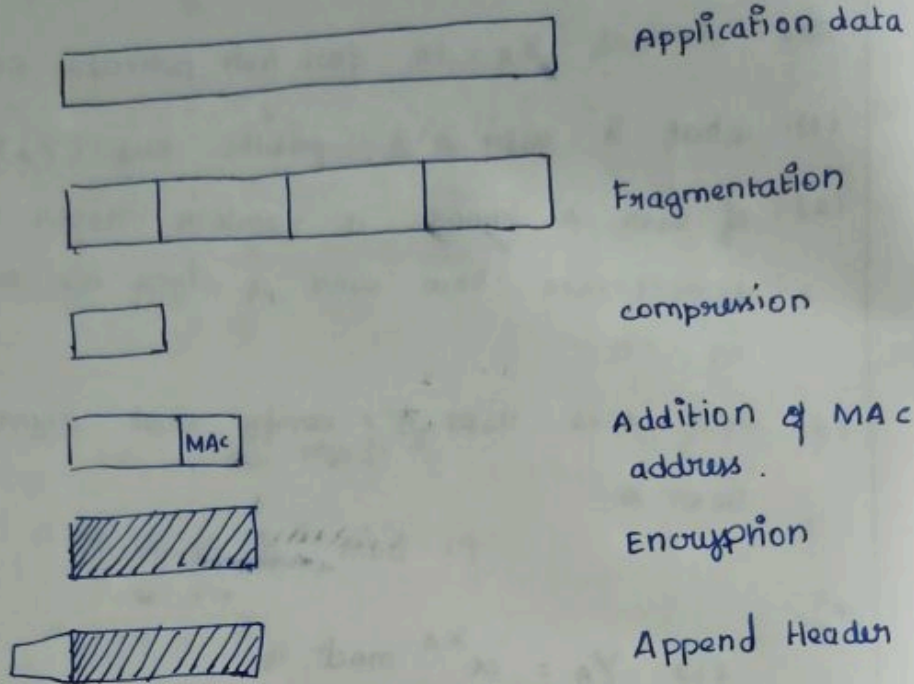 Application data
Fragmentation
compression
MAC
Addition of MAC
address.
Encryption
Append Header